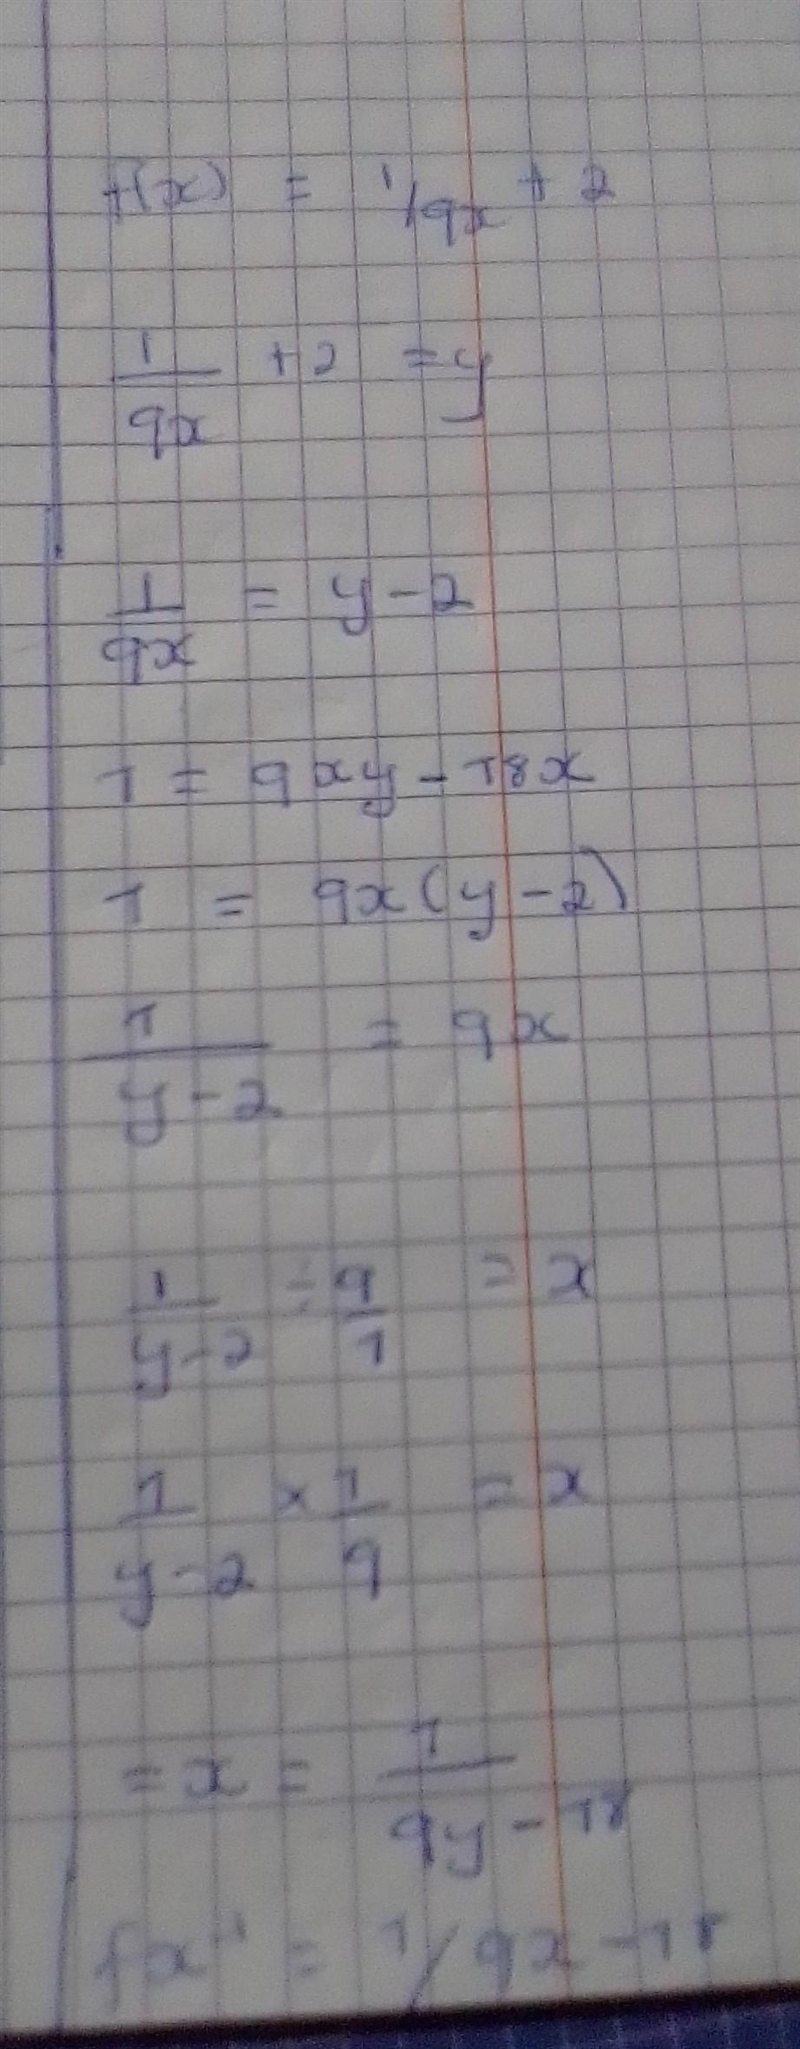 f(x) = 1/9x + 2
1/9x + 2 = y
1/9x = y - 2
1 = 9xy - 18x
1 = 9x(y - 2)
1/y-2 = 9x
1/y-2 ÷ 9/1 = x
1/y-2 × 1/9 = x
= x = 1/9y-18
fx⁻¹ = 1/9x-18